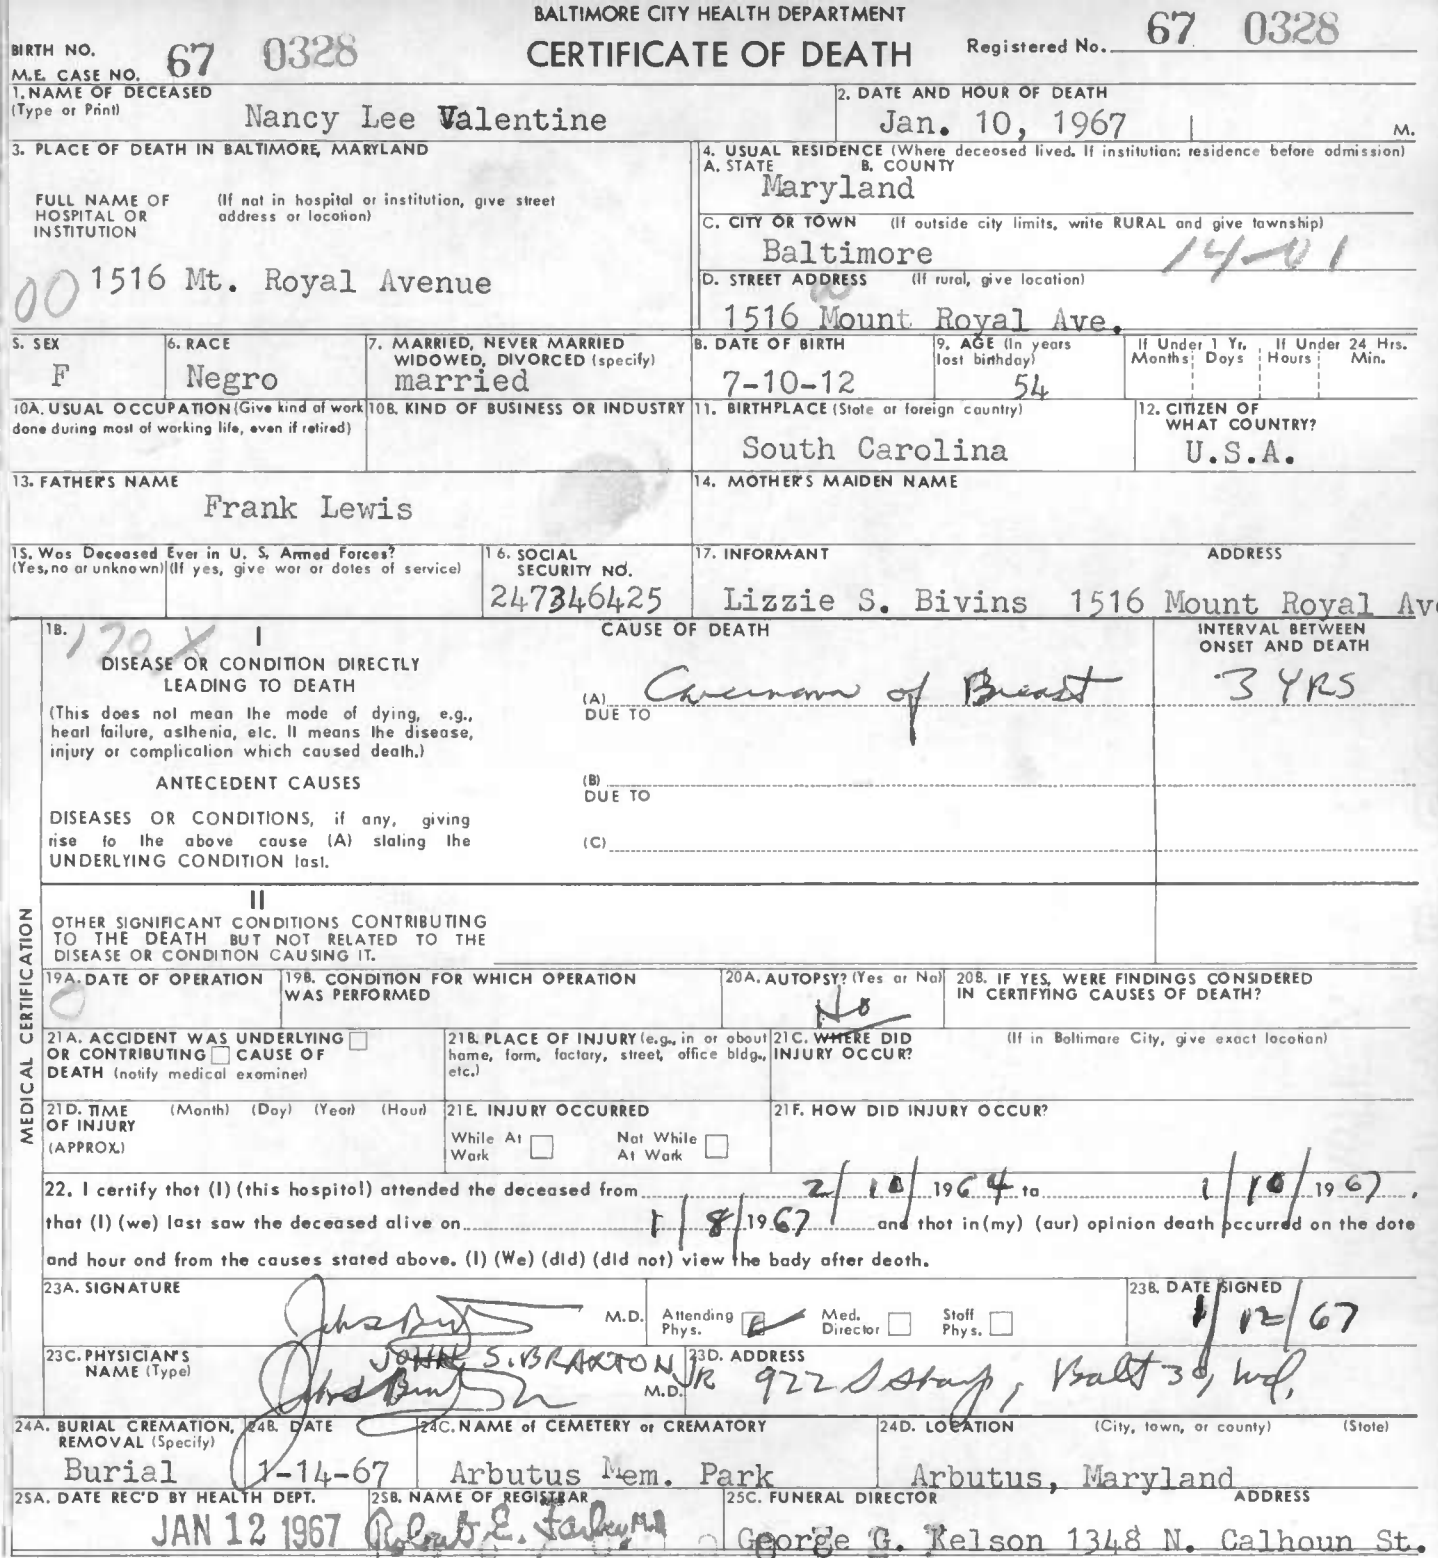 BALTIMORE CITY HEALTH DEPARTMENT
BIRTH NO. CERTIFICATE OF DEATH Registered No. 67 0328
M.E. CASE NO. 67 0328
1. NAME OF DECEASED
(Type or Print) Nancy Lee Valentine
2. DATE AND HOUR OF DEATH
Jan. 10, 1967 M.
3. PLACE OF DEATH IN BALTIMORE, MARYLAND
FULL NAME OF HOSPITAL OR INSTITUTION (If not in hospital or institution, give street address or location)
00 1516 Mt. Royal Avenue
4. USUAL RESIDENCE (Where deceased lived. If institution: residence before admission)
A. STATE B. COUNTY
Maryland
C. CITY OR TOWN (If outside city limits, write RURAL and give township)
Baltimore 14-01
D. STREET ADDRESS (If rural, give location)
1516 Mount Royal Ave.
5. SEX
F
6. RACE
Negro
7. MARRIED, NEVER MARRIED
WIDOWED, DIVORCED (specify)
married
8. DATE OF BIRTH
7-10-12
9. AGE (In years
last birthday)
54
If Under 1 Yr. If Under 24 Hrs.
Months Days Hours Min.
10A. USUAL OCCUPATION (Give kind of work
done during most of working life, even if retired)
10B. KIND OF BUSINESS OR INDUSTRY
11. BIRTHPLACE (State or foreign country)
South Carolina
12. CITIZEN OF
WHAT COUNTRY?
U.S.A.
13. FATHER'S NAME
Frank Lewis
14. MOTHER'S MAIDEN NAME
15. Was Deceased Ever in U. S. Armed Forces?
(Yes, no or unknown) (If yes, give war or dates of service)
16. SOCIAL
SECURITY NO.
247346425
17. INFORMANT ADDRESS
Lizzie S. Bivins 1516 Mount Royal Av
18. 170X I CAUSE OF DEATH INTERVAL BETWEEN
ONSET AND DEATH
DISEASE OR CONDITION DIRECTLY
LEADING TO DEATH
(This does not mean the mode of dying, e.g.,
heart failure, asthenia, etc. It means the disease,
injury or complication which caused death.)
(A) Carcinoma of Breast 3 YRS
DUE TO
ANTECEDENT CAUSES
(B)
DUE TO
DISEASES OR CONDITIONS, if any, giving
rise to the above cause (A) stating the
UNDERLYING CONDITION last.
(C)
II
OTHER SIGNIFICANT CONDITIONS CONTRIBUTING
TO THE DEATH BUT NOT RELATED TO THE
DISEASE OR CONDITION CAUSING IT.
MEDICAL CERTIFICATION
19A. DATE OF OPERATION
0
19B. CONDITION FOR WHICH OPERATION
WAS PERFORMED
20A. AUTOPSY? (Yes or No)
No
20B. IF YES, WERE FINDINGS CONSIDERED
IN CERTIFYING CAUSES OF DEATH?
21A. ACCIDENT WAS UNDERLYING
OR CONTRIBUTING CAUSE OF
DEATH (notify medical examiner)
21B. PLACE OF INJURY (e.g., in or about
home, farm, factory, street, office bldg.,
etc.)
21C. WHERE DID
INJURY OCCUR?
(If in Baltimore City, give exact location)
21D. TIME (Month) (Day) (Year) (Hour)
OF INJURY
(APPROX.)
21E. INJURY OCCURRED
While At Work Not While At Work
21F. HOW DID INJURY OCCUR?
22. I certify that (I) (this hospital) attended the deceased from 2/10/1964 to 1/10/1967,
that (I) (we) last saw the deceased alive on 1/8/1967 and that in (my) (our) opinion death occurred on the date
and hour and from the causes stated above. (I) (We) (did) (did not) view the body after death.
23A. SIGNATURE
M.D.
Attending Phys. Med. Director Staff Phys.
23B. DATE SIGNED
1/12/67
23C. PHYSICIAN'S
NAME (Type)
JOHN S. BRAXTON JR
M.D.
23D. ADDRESS
922 S Sharp, Balt 30, Md.
24A. BURIAL CREMATION,
REMOVAL (Specify)
Burial
24B. DATE
1-14-67
24C. NAME of CEMETERY or CREMATORY
Arbutus Mem. Park
24D. LOCATION (City, town, or county) (State)
Arbutus, Maryland
25A. DATE REC'D BY HEALTH DEPT.
JAN 12 1967
25B. NAME OF REGISTRAR
Robert E. Farber, M.D.
25C. FUNERAL DIRECTOR ADDRESS
George G. Kelson 1348 N. Calhoun St.